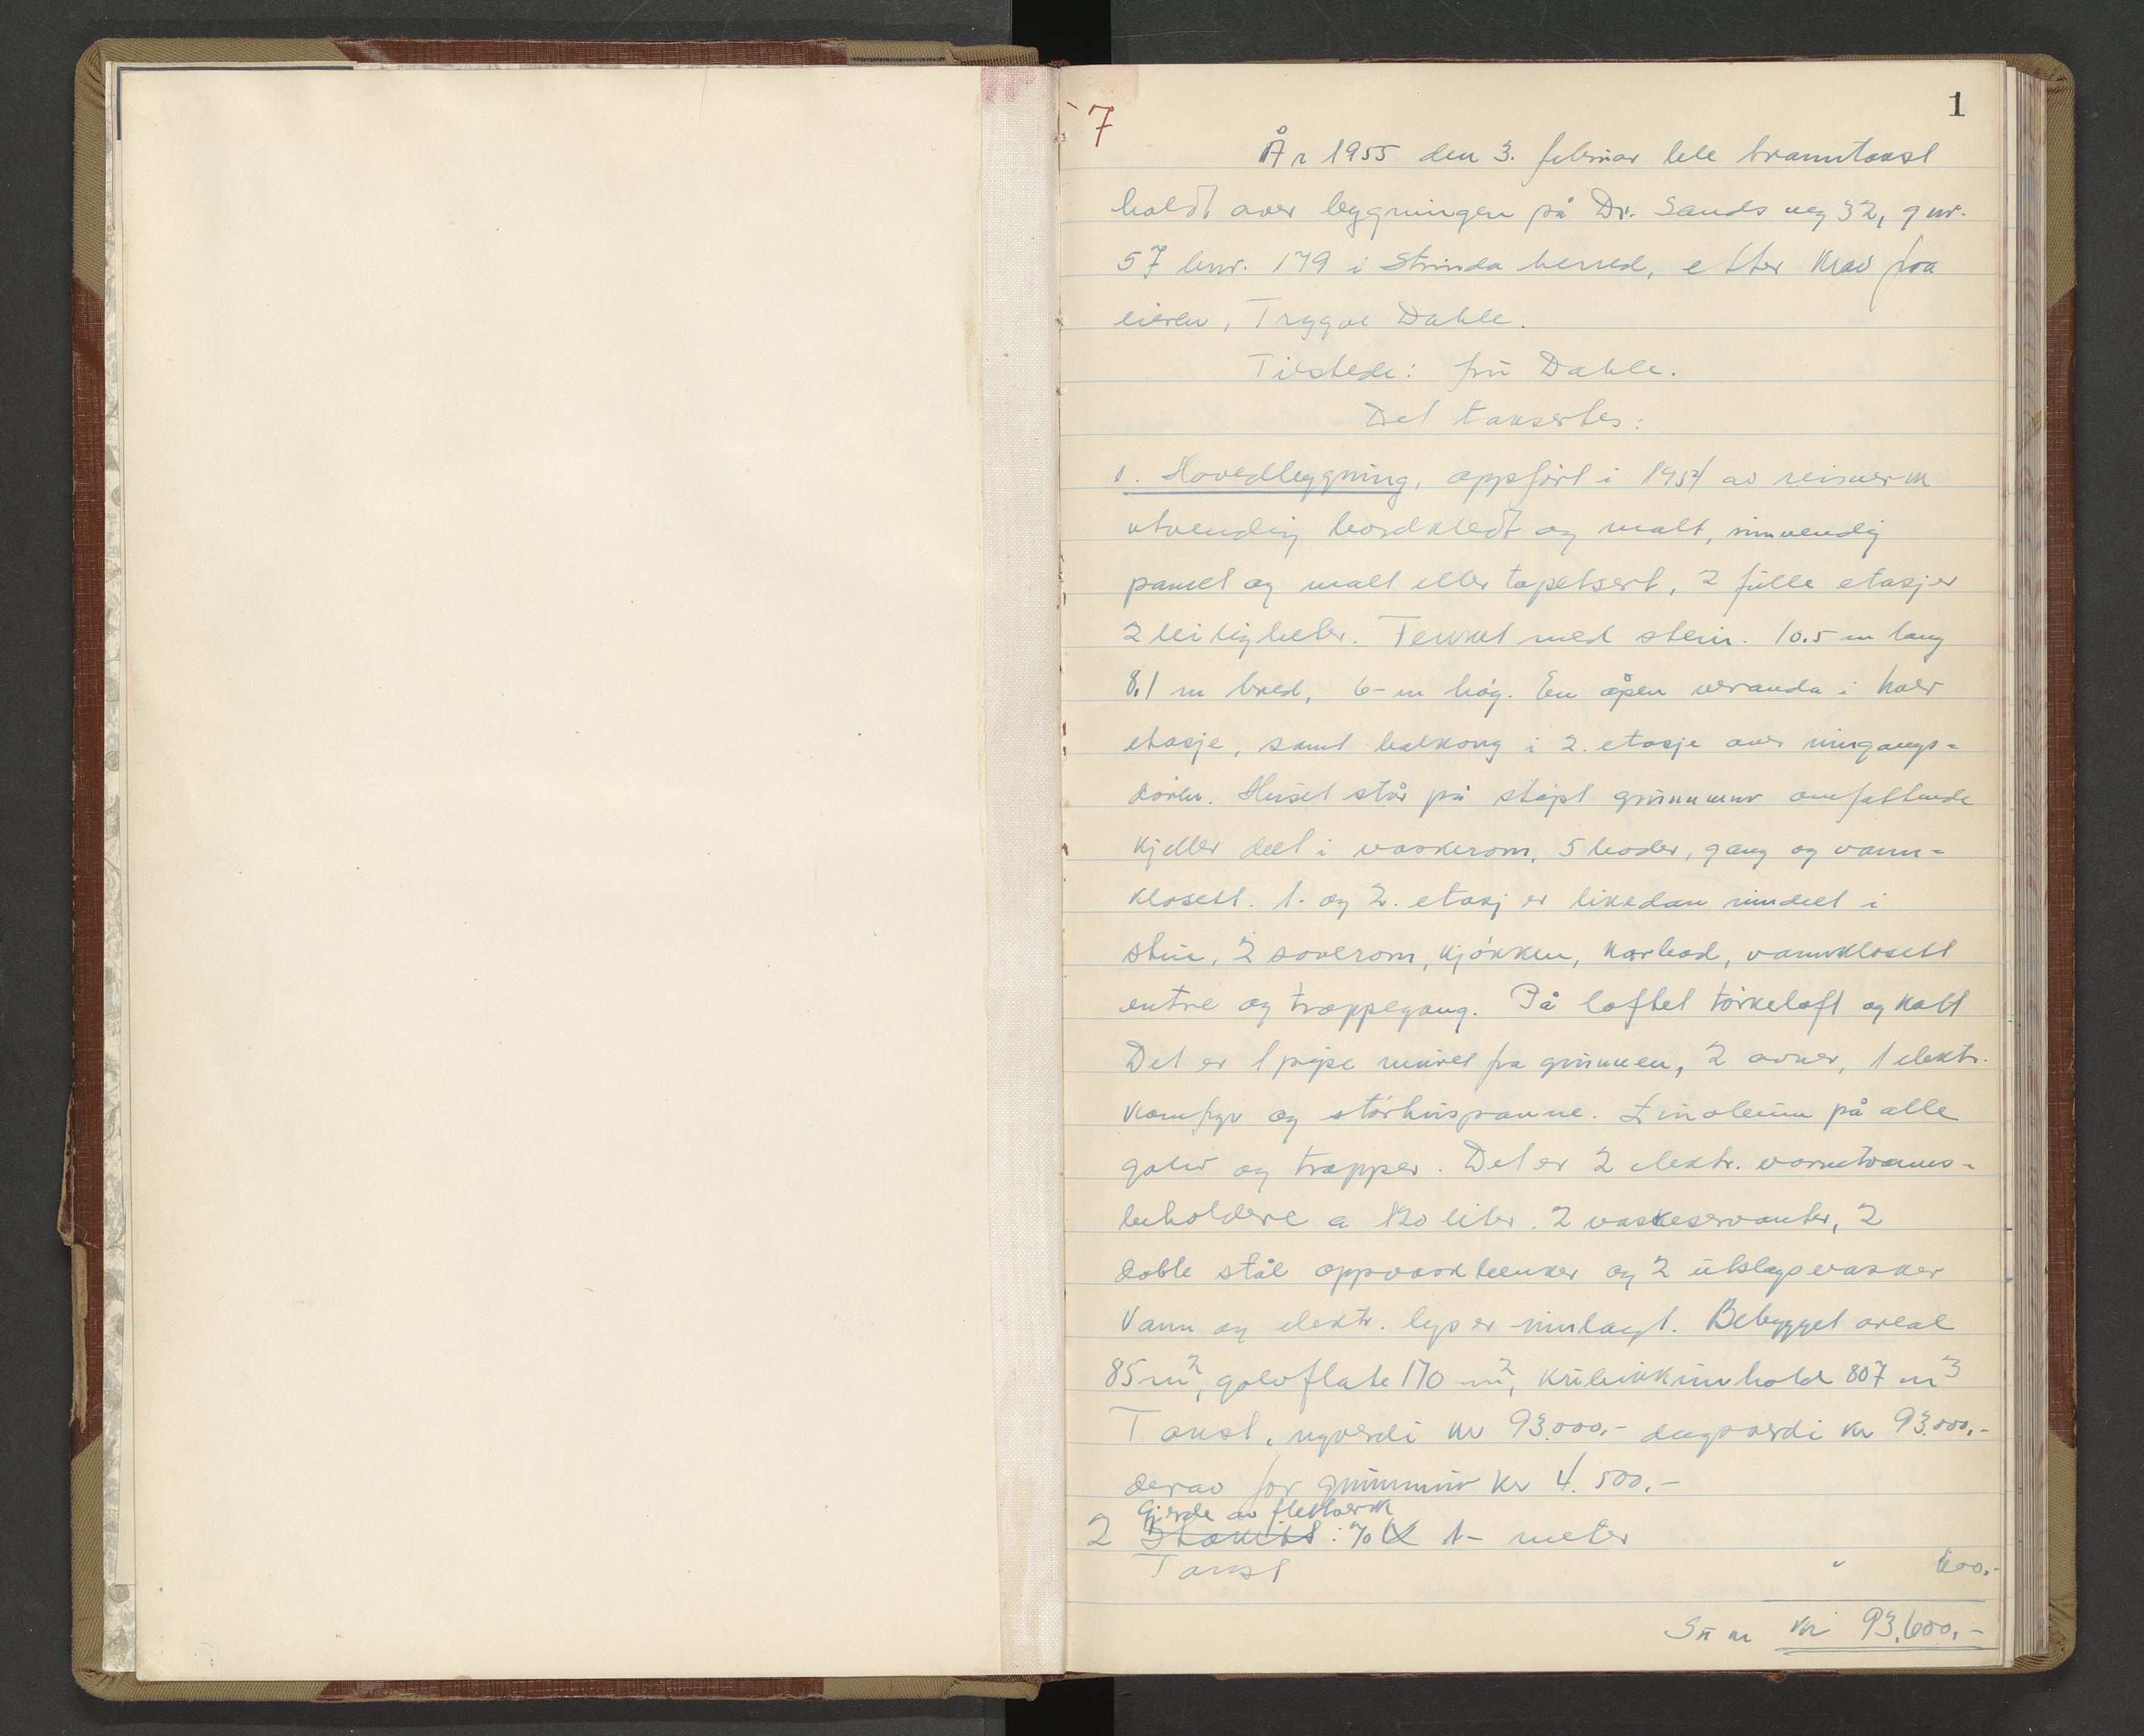 7
1
År 1955 den 3. februar ble branntakst
holdt over bygningen på Dr. Sands veg 32, gnr.
57 bnr. 179 i Strinda herred, etter krav fra
eieren, Trygve Dahle.
Tilstede: fru Dahle.
Det taksertes:
1. Hovedbygning, oppført i 1954 av reisverk
utvendig bordkledt og malt, innvendig
panelt og malt eller tapetsert, 2 fulle etasjer
2 leiligheter. Tekket med stein. 10.5 m lang
8,1 m bred, 6- m høg. En åpen veranda i hver
etasje, samt balkong i 2. etasje over inngangs=
døren. Huset står på støpt grunnmur omfattende
kjeller delt i vaskerom, 5 boder, gang og vann=
klosett. 1. og 2. etasj er likedan inndelt i
stue, 2 soverom, kjøkken, karbad, vannklosett
entre og trappegang. På loftet tørkeloft og kott
Det er 1 pipe muret fra grunnen, 2 ovner, 1 elektr.
komfyr og størhuspanne. Linoleum på alle
golv og trapper. Det er 2 elektr. varmtvanns-
beholdere a 120 liter. 2 vaskeservanter, 2
doble stål oppvaskbenker og 2 utslagsvasker
Vann og elektr. lys er innlagt. Bebygget areal
85 m², golvflate 170 m², kubikkinnhold 807 m³
Takst, nyverdi kr 93.000,- dagsverdi kr 93.000,-
derav for grunnmur kr 4.500.-
Gjerde av flettverk
2 Stakitt : 70 1- meter
Takst " 600.-
Sum kr 93.600,-